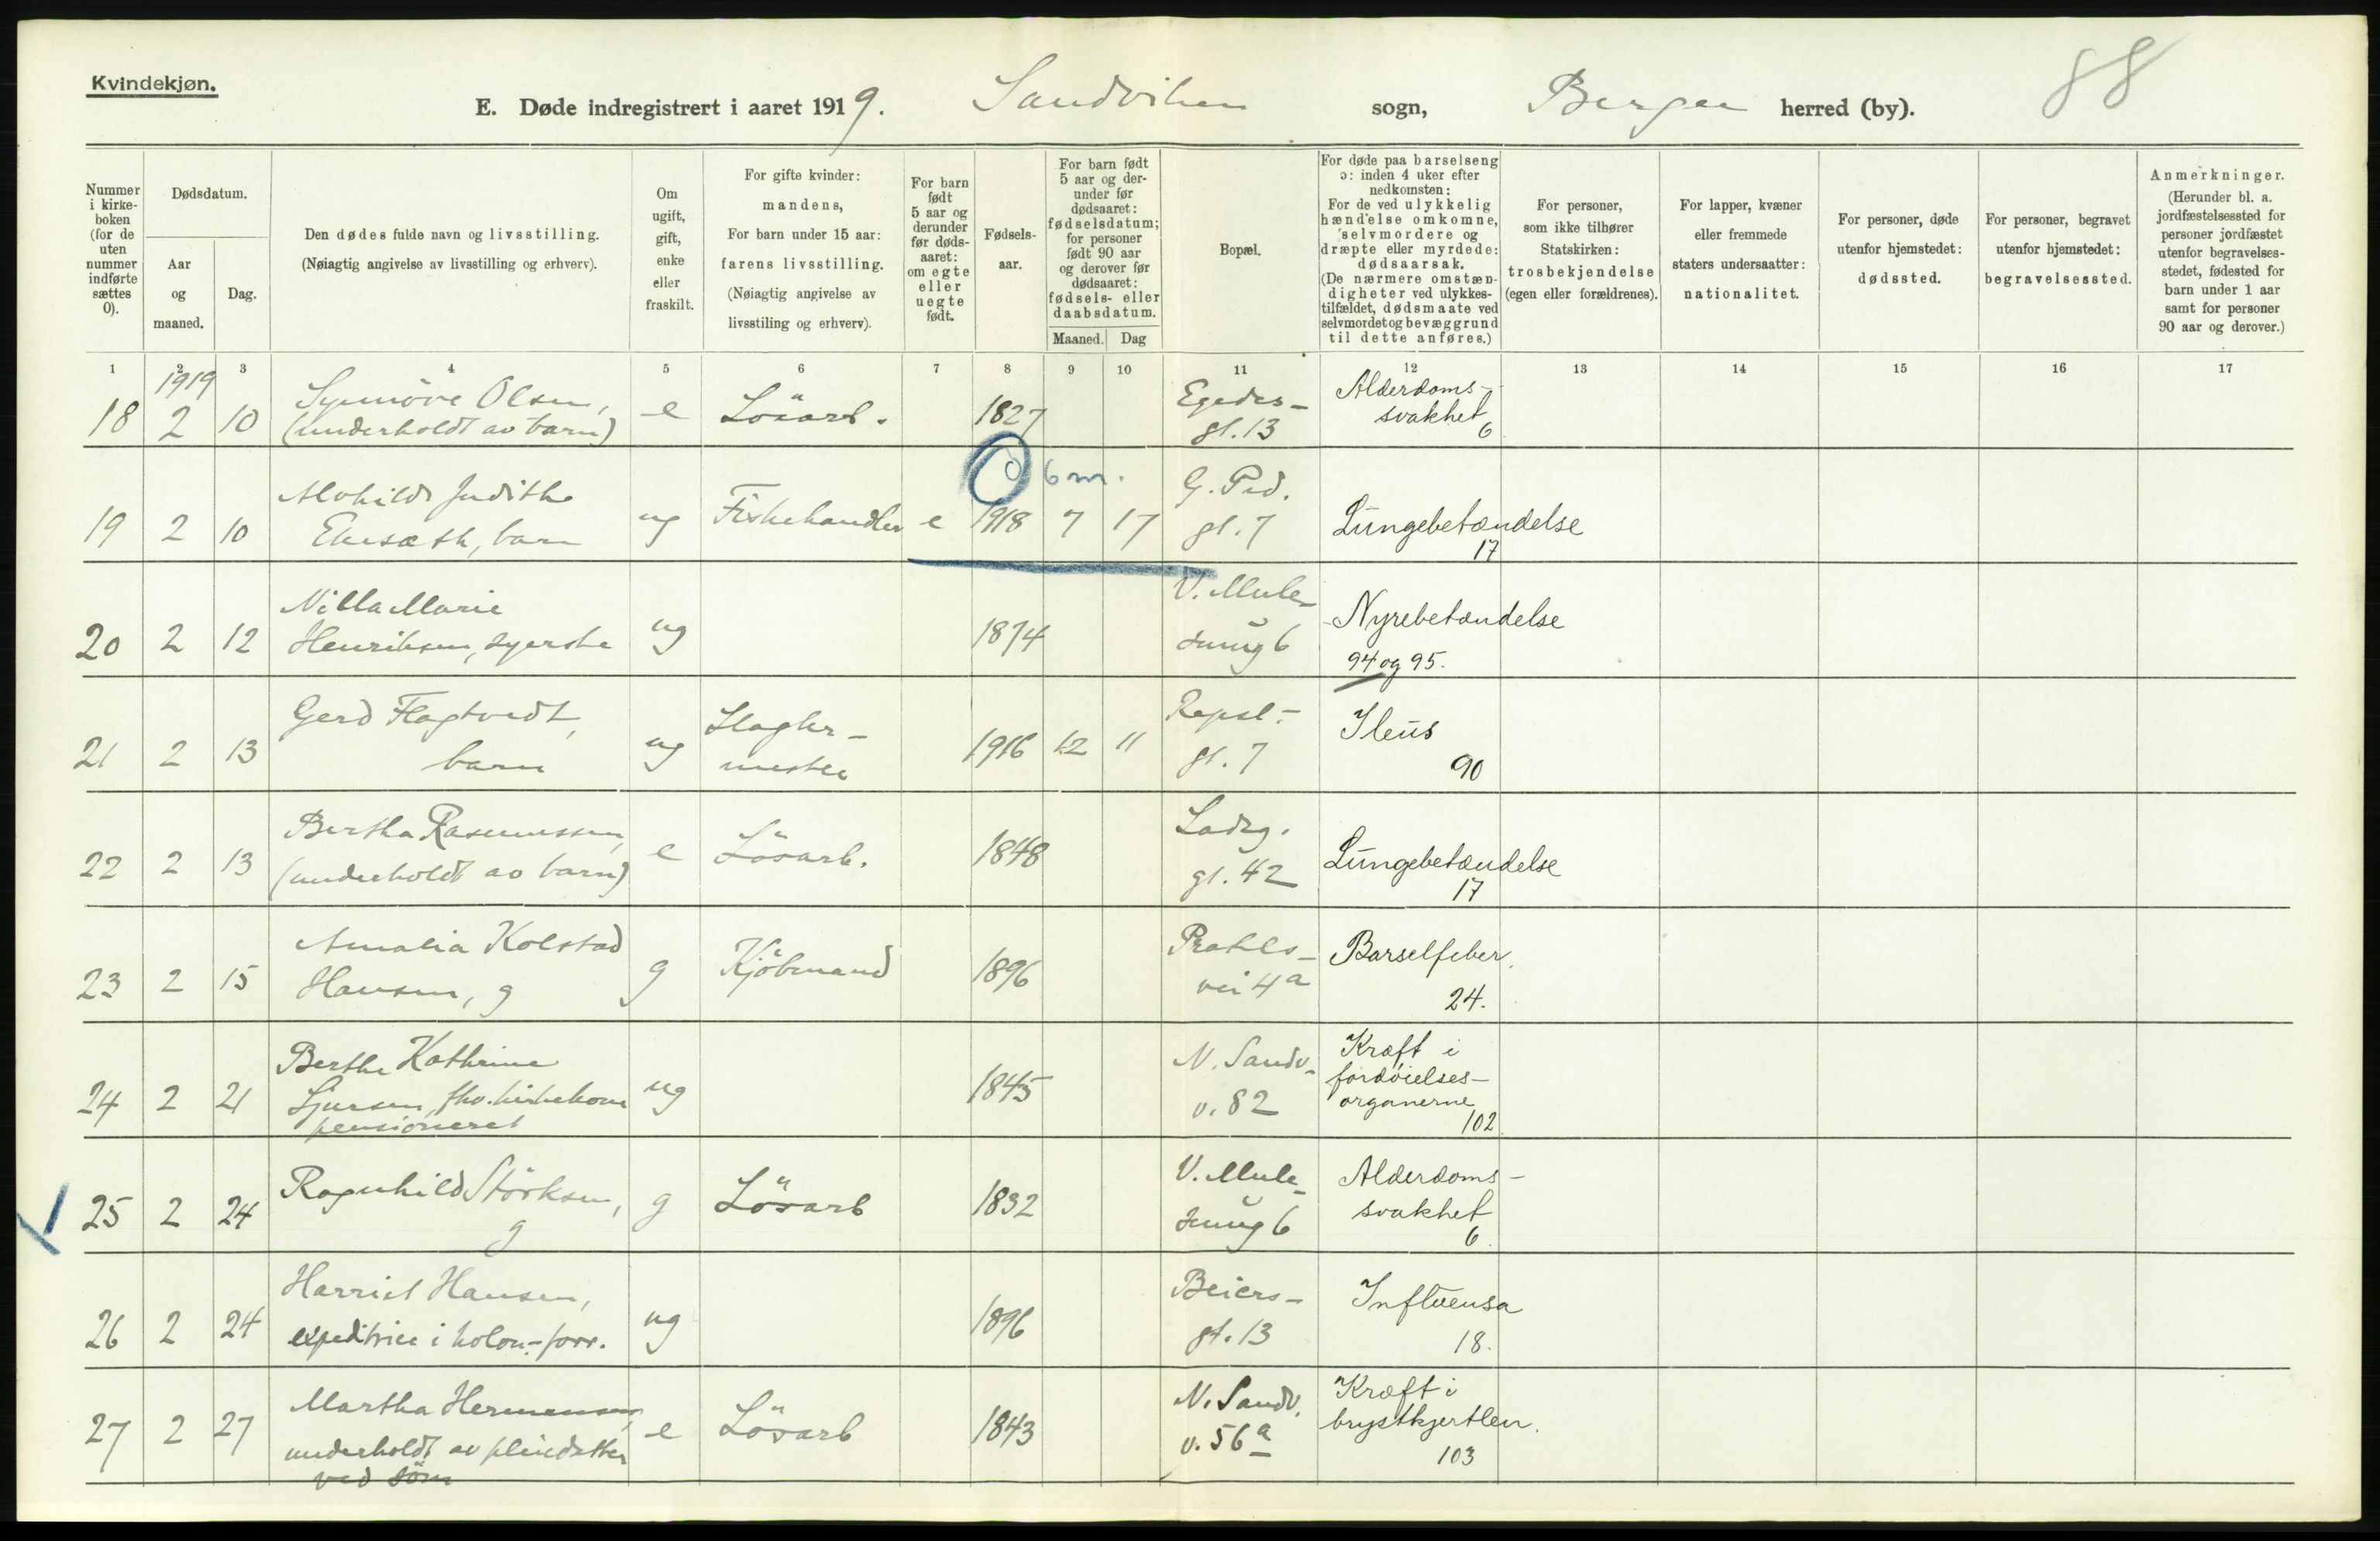 Kvindekjøn.
88
E. Døde indregistrert i aaret 1919. Sandviken sogn, Bergen herred (by).
Nummer i kirkeboken (for de uten nummer indførte sættes 0).
Dødsdatum.
Aar og maaned.
Dag.
Den dødes fulde navn og livsstilling.
(Nøiagtig angivelse av livsstilling og erhverv).
Om ugift, gift, enke eller fraskilt.
For gifte kvinder: mandens,
For barn under 15 aar: farens livsstilling.
(Nøiagtig angivelse av livsstiling og erhverv).
For barn født 5 aar og derunder før dødsaaret: om egte eller uegte født.
Fødselsaar.
For barn født 5 aar og derunder før dødsaaret: fødselsdatum; for personer født 90 aar og derover før dødsaaret: fødsels- eller daabsdatum.
Maaned. Dag
Bopæl.
For døde paa barselseng ɔ: inden 4 uker efter nedkomsten:
For de ved ulykkelig hændelse omkomne, selvmordere og dræpte eller myrdede: dødsaarsak.
(De nærmere omstændigheter ved ulykkestilfældet, dødsmaate ved selvmordet og bevæggrund til dette anføres.)
For personer, som ikke tilhører Statskirken: trosbekjendelse (egen eller forældrenes).
For lapper, kvæner eller fremmede staters undersaatter: nationalitet.
For personer, døde utenfor hjemstedet: dødssted.
For personer, begravet utenfor hjemstedet: begravelsessted.
Anmerkninger.
(Herunder bl. a. jordfæstelsessted for personer jordfæstet utenfor begravelsesstedet, fødested for barn under 1 aar samt for personer 90 aar og derover.)
1 2 3 4 5 6 7 8 9 10 11 12 13 14 15 16 17
1919
18 2 10 Synnöve Olsen, (underholdt av barn) e Lösarb. 1827 Egedes- gt. 13 Alderdoms- svakhet 6
0 6 m.
19 2 10 Alvhild Judithe barn ug Fiskehandler e 1918 7 17 G. Præd. gt. 7 Lungebetændelse 17
20 2 12 Nilla Marie Henriksen, syerske ug 1874 V. Mule- smug 6 Nyrebetændelse 94 og 95.
21 2 13 Gerd Flagtvedt, barn ug Slagter- mester 1916 12 11 Repsl.- gt. 7 Ileus 90
22 2 13 Bertha Rasmussen, (underholdt av barn) e Lösarb. 1848 Ladeg. gt. 42 Lungebetændelse 17
23 2 15 Amalia Kolstad Hansen, g g Kjöbmand 1896 Prahls- vei 4a Barselfeber. 24.
24 2 21 Berthe Kathrine fhv. pensioneret ug 1845 N. Sandv.- v. 82 Kræft i fordøielses- organerne 102
25 2 24 Ragnhild Störksen, g g Lösarb 1832 V. Mule- smug 6 Alderdoms- svakhet 6.
26 2 24 Harriet Hansen, expeditrice i kolon.-forr. ug 1896 Beiers- gt. 13 Influensa 18.
27 2 27 Martha Hermansen, underholdt av pleiedatter ved söm e Lösarb 1843 N. Sandv. v. 56a Kræft i brystkjertlen. 103